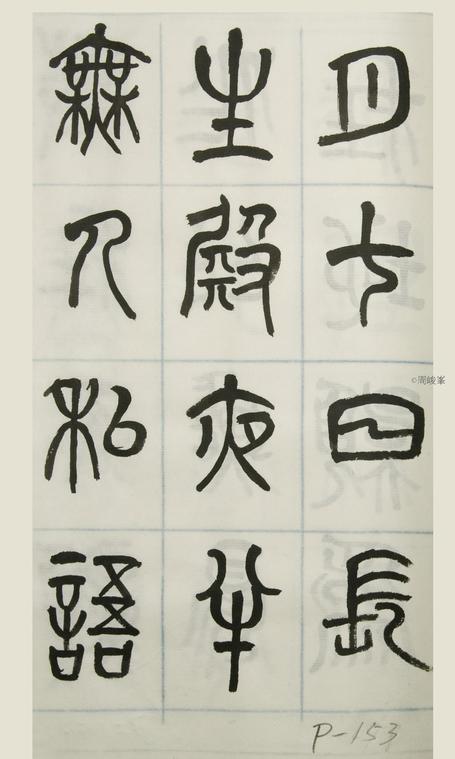 月七日長
生殿夜半
無人私語
P-153
©周峻峯